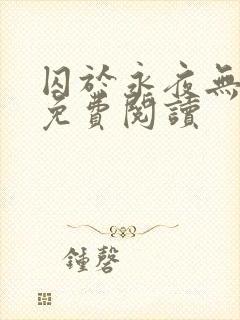 囚於永夜無
免費閱讀
鍾磬